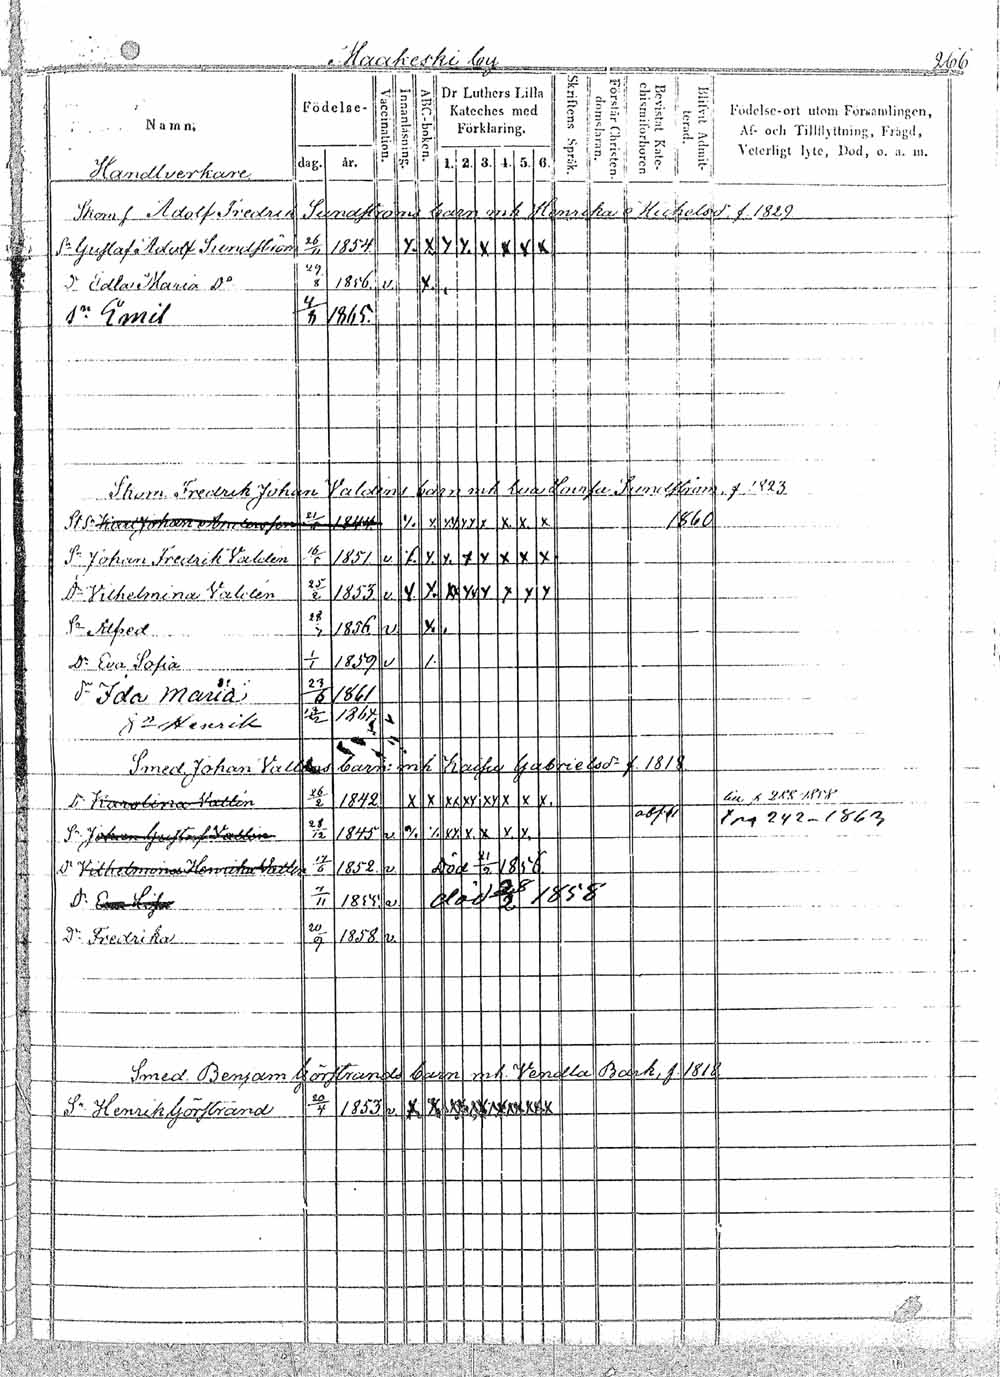 Maakeski by 266
Namn.
Födelse-
dag. år.
Vaccination.
Innanläsning.
ABC-boken.
Dr Luthers Lilla
Kateches med
Förklaring.
1. 2. 3. 4. 5. 6.
Skriftens Språk.
Förstår Christen-
domsläran.
Bevistat Kate-
chismiförhören
Blifvit Admit-
terad.
Födelse-ort utom Församlingen,
Af- och Tillflyttning, Frägd,
Veterligt lyte, Död, o. a. m.
Handtverkare
Skom. Adolf Fredrik Sundströms barn mh Henrika Michelsdr f. 1829
Sn Gustaf Adolf Sundström 26/11 1854 x x x x x x x x
Dr Edla Maria Do 29/8 1856 v x
Sn Emil 4/8 1865.
Skom. Fredrik Johan Valdens barn mh Eva Lovisa Sundström, f 1823
StSn Karl Johan 21 1844 x x x x x x x 1860
Sn Johan Fredrik Valdén 16 1851 v x x x x x x x x
Dr Vilhelmina Valdén 25/2 1853 v x x x x x x x x
Sn Alfred 28/7 1856 v x
Dr Eva Sofia 1/1 1859 v 1.
Dr Ida Maria 23/6 1861
Sn Henrik 1864
Smed Johan barn mh Kaisa Gabrielsdr f. 1818
Dr Karolina Vallin 26/2 1842 x x xx xx xx x x x. 1858
Sn Johan Gustaf Vallin 28/12 1845 v x x x x x x x 242 - 1863
Dr Vilhelmina Henrika Vallin 17/6 1852 v Död 21/2 1856
Dr Eva Lisa 7/11 1855 v död 28/2 1858
Dr Fredrika 20/9 1858 v.
Smed. Benjam Görstrands barn mh. Vendla Bark, f. 1818
Sn Henrik Görstrand 20/4 1853 v x x xx xx xx xx x